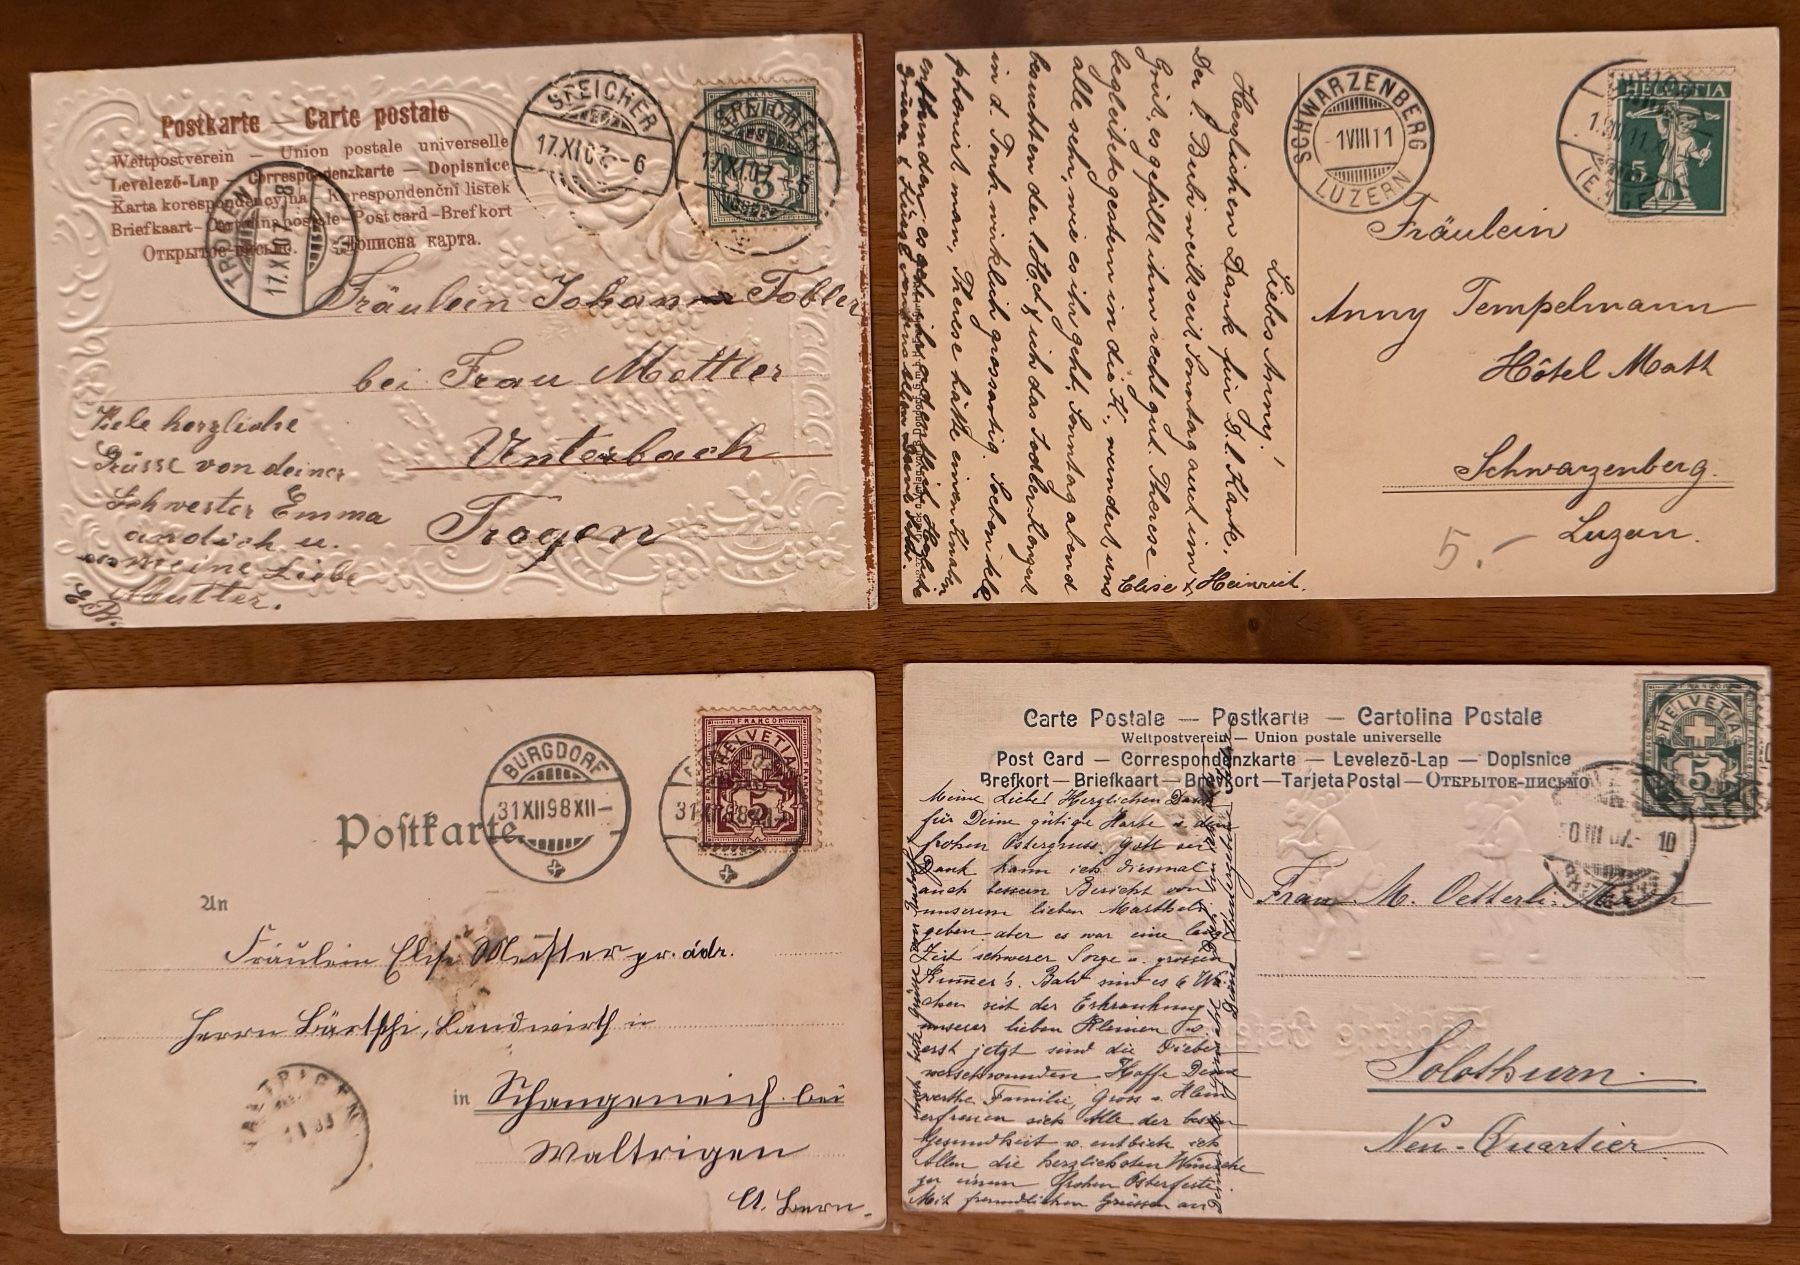 Postkarte — Carte postale
Weltpostverein — Union postale universelle
Levelező-Lap — Correspondenzkarte — Dopisnice
Karta korespondencyjna Korespondenční listek
Briefkaart — postale — Post card — Brefkort
Открытое письмо. — Дописна карта.
SPEICHER
17.XI.07.–6
SPEICHER
17.XI.07.–6
TROGEN
17.XI.07.–8
5
Fräulein Johanna Tobler
bei Frau Mettler
Unterbach
Trogen
Viele herzliche
Grüsse von deiner
Schwester Emma
an dich u.
meine Liebe
Mutter.
SCHWARZENBERG
1 VIII 11
LUZERN
HELVETIA
5
Liebes Anny!
Herzlichen Dank für D. l. Karte.
Der l. Bubi weilt seit Sonntag aus im
Grüt, es gefällt ihm recht gut. Therese
begleitete gestern in die K., wundert uns
alle sehr, wie es ihr geht. Sonntag abend
besuchten der l. Hch. & ich das Jodler-Konzert
in d. Tonh. wirklich grossartig. Soeben
phoniert man, Therese hätte einen Knaben
entbunden, es geht ihr ordentlich. Herzliche
Grüsse & Küsse von uns allen Deine
Elise & Heinrich.
Fräulein
Anny Tempelmann
Hôtel Matt
Schwarzenberg.
Luzern.
5.–
Postkarte
BURGDORF
31 XII 98 XII–
FRANCO
HELVETIA
5
31 XII 98 XII–
An
Fräulein Elise Meister pr. adr.
Herrn Bärtschi, Landwirth in
in Schangeneich bei
Waltrigen
Ct. Bern.
Carte Postale — Postkarte — Cartolina Postale
Weltpostverein — Union postale universelle
Post Card — Correspondenzkarte — Levelező-Lap — Dopisnice
Brefkort — Briefkaart — Brevkort — Tarjeta Postal — Открытое-письмо
HELVETIA
5
30 III 07.– 10
Meine Liebe! Herzlichen Dank
für Deine gütige Karte u. den
frohen Ostergruss. Gott sei
Dank kann ich diesmal
auch bessern Bericht von
unserem lieben Martheli
geben, aber es war eine lange
Zeit schwerer Sorge u. grossen
Kummer's. Bald sind es 6 Wo
chen seit der Erkrankung
unserer lieben Kleinen u.
erst jetzt sind die Fieber
verschwunden. Hoffe Deine
werthe Familie, Gross u. Klein
erfreuen sich Alle der besten
Gesundheit u. entbiete ich
Allen die herzlichsten Wünsche
zu einem frohen Osterfeste.
Mit freundlichen Grüssen an
Frau M. Oetterli-
Solothurn.
Neu-Quartier